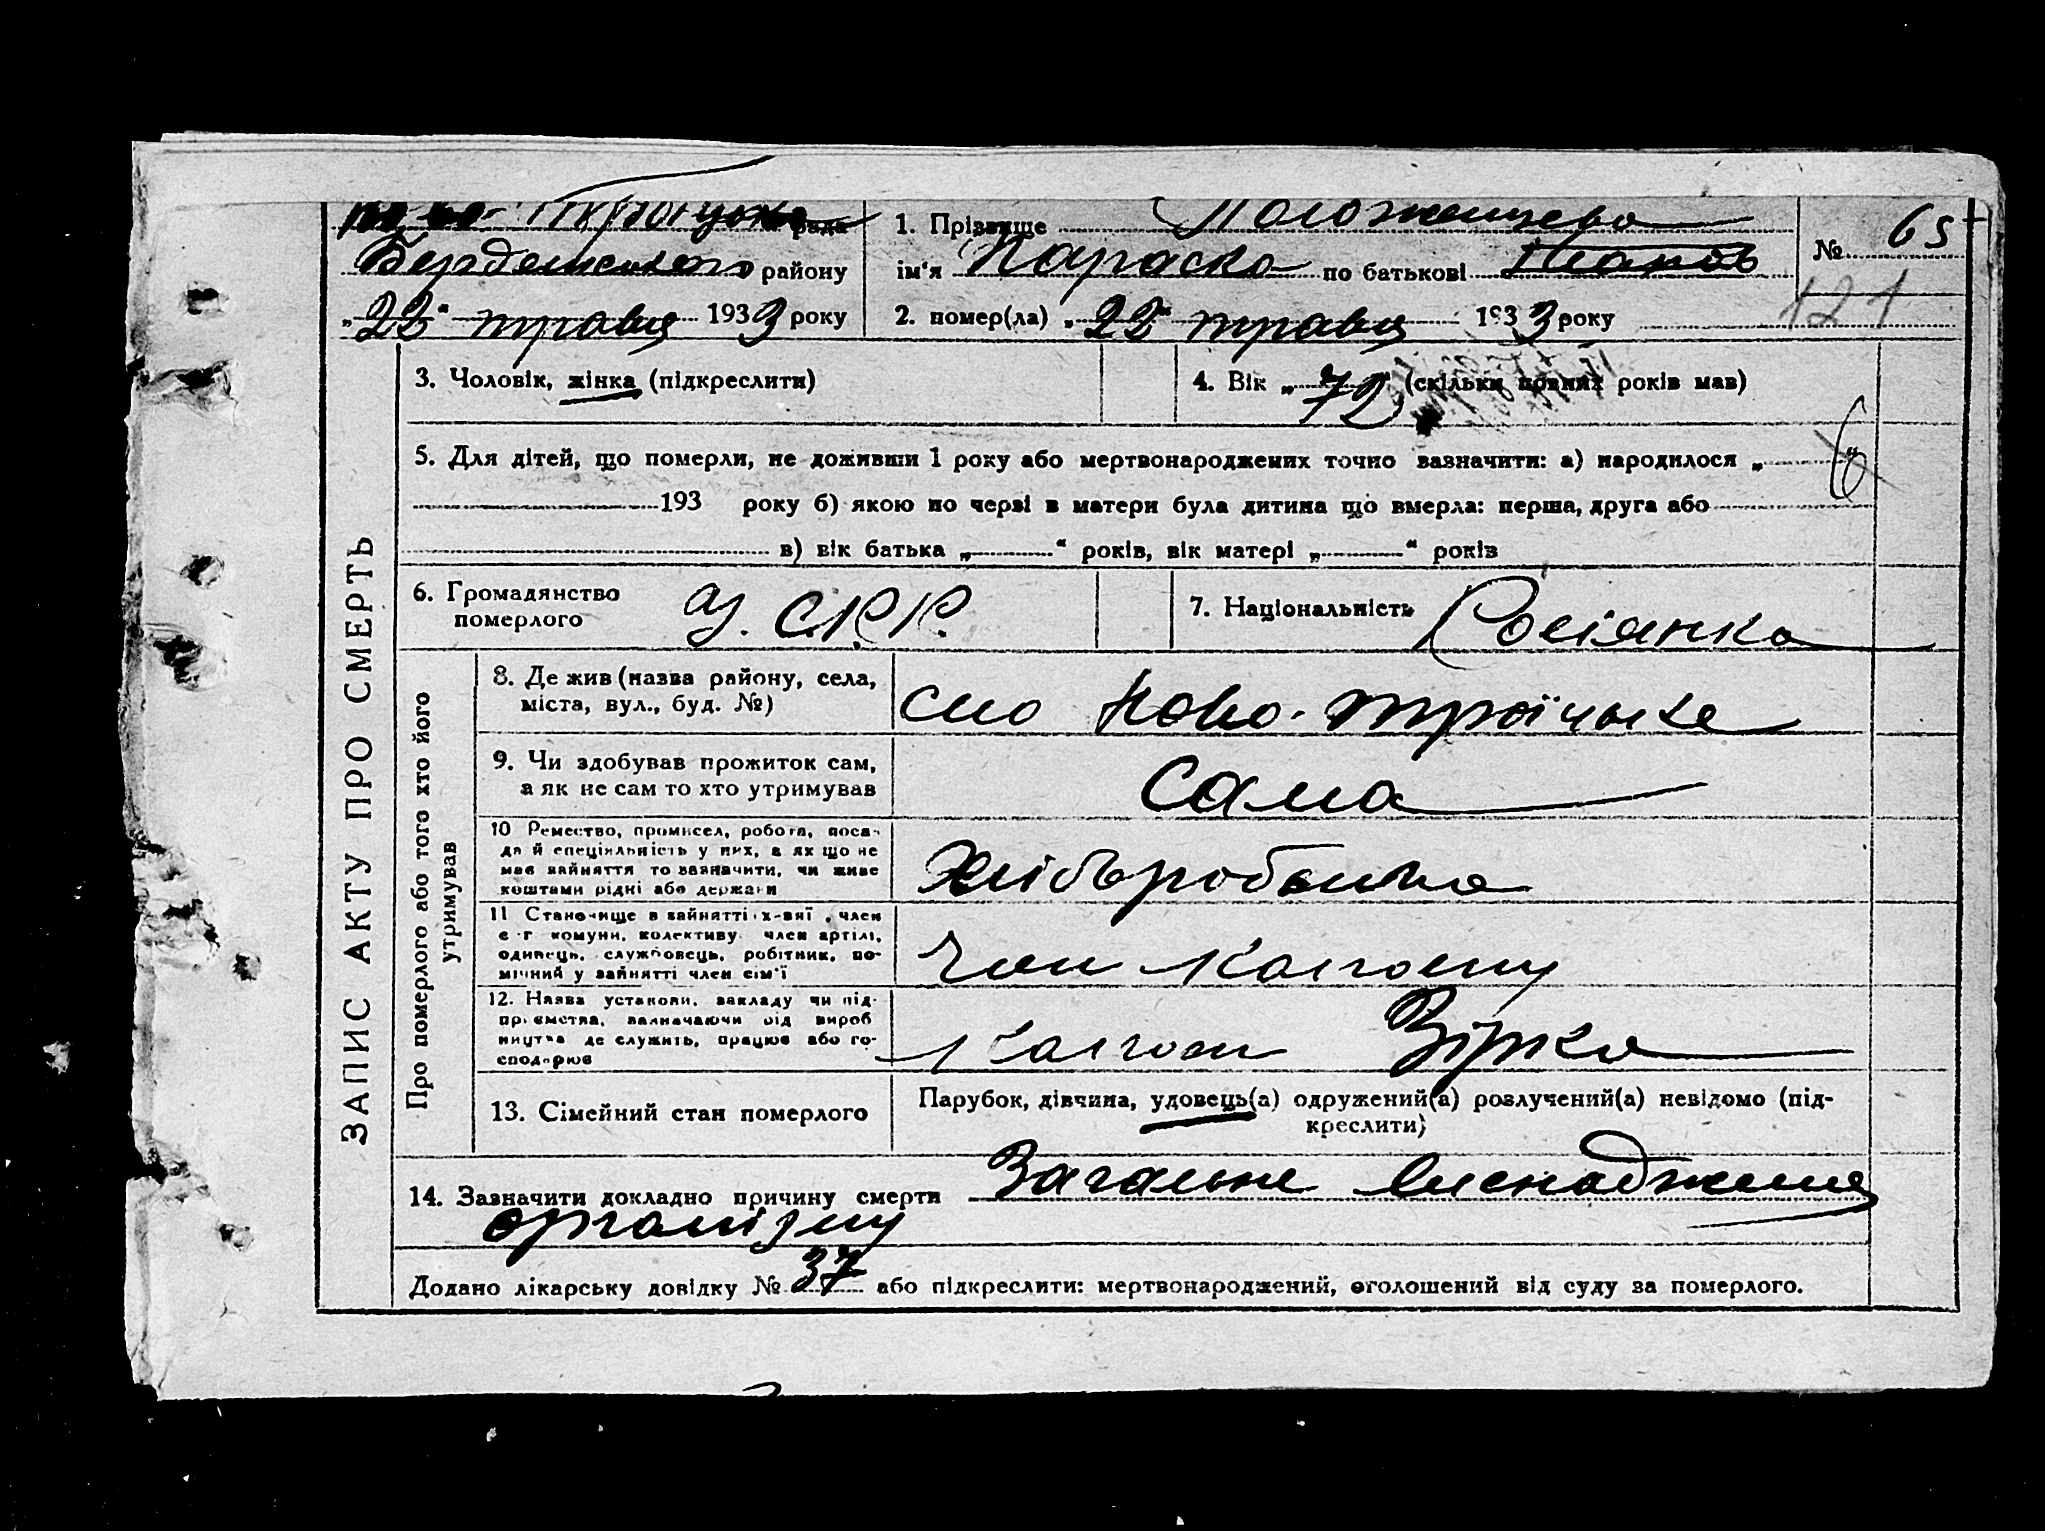 рада
Бердянського району
„22“ травня 1933 року
1. Прізвище Положенцева
ім‘я Параска по батькові
№ 65
2. помер(ла) „22“ травня 1933 року
121
ЗАПИС АКТУ ПРО СМЕРТЬ
3. Чоловік, жінка (підкреслити)
4. Вік „72“ (скільки повних років мав)
5. Для дітей, що померли, не доживши 1 року або мертвонароджених точно зазначити: а) народилося „ “
193 року б) якою по черзі в матери була дитина що вмерла: перша, друга або
в) вік батька „ “ років, вік матері „ “ років
6. Громадянство
померлого
У. С.Р.Р.
7. Національність Росіянка
Про померлого або того хто його
утримував
8. Де жив (назва району, села,
міста, вул., буд. №)
село Ново-троїцьке
9. Чи здобував прожиток сам,
а як не сам то хто утримував
Сама
10 Ремество, промисел, робота, поса-
да й спеціяльність у них, а як що не
мав зайняття то зазначити, чи живе
коштами рідні або держави
Хліборобська
11 Становище в зайнятті член
с-г комуни, колективу член артілі,
одинець, службовець, робітник, по-
мічний у зайнятті член сім'ї
Член колгоспу
12. Назва установи, закладу чи під-
приємства, зазначаючи від вироб
ництва де служить, працює або го-
сподарює
Колгосп Зірка
13. Сімейний стан померлого
Парубок, дівчина, удовець(а) одружений(а) розлучений(а) невідомо (під-
креслити)
14. Зазначити докладно причину смерти Загальне виснаження
організму
Додано лікарську довідку № 37 або підкреслити: мертвонароджений, оголошений від суду за померлого.